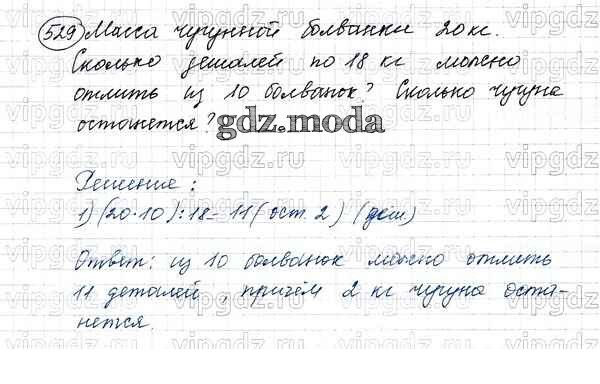 529 Масса чугунной болванки 20 кг.
Сколько деталей по 18 кг можно
отлить из 10 болванок? Сколько чугуна
останется?
gdz.moda
Решение:
1) (20·10):18= 11 (ост. 2) (дет)
Ответ: из 10 болванок можно отлить
11 деталей, причём 2 кг чугуна оста-
нется.